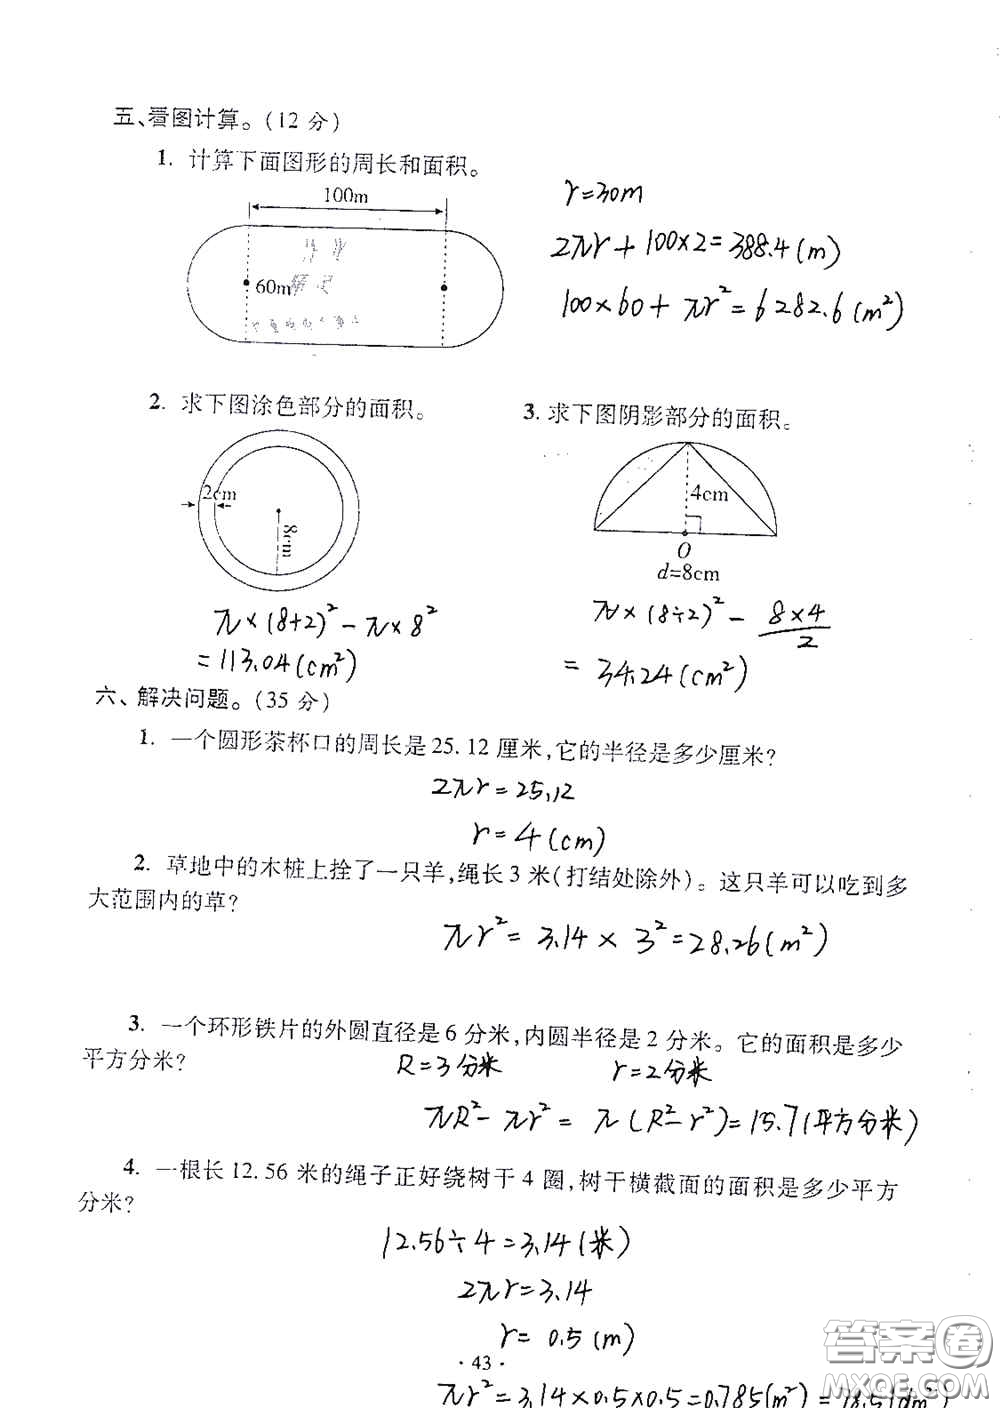 五、看图计算。(12 分)
1. 计算下面图形的周长和面积。
100m
60m
r=30m
2πr+100×2=388.4(m)
100×60+πr²=6282.6(m²)
2. 求下图涂色部分的面积。
3. 求下图阴影部分的面积。
2cm
8cm
4cm
O
d=8cm
π×(8+2)²-π×8²
=113.04(cm²)
π×(8÷2)²-8×4/2
=34.24(cm²)
六、解决问题。(35 分)
1. 一个圆形茶杯口的周长是25.12厘米,它的半径是多少厘米?
2πr=25.12
r=4(cm)
2. 草地中的木桩上拴了一只羊,绳长3米(打结处除外)。这只羊可以吃到多
大范围内的草?
πr²=3.14×3²=28.26(m²)
3. 一个环形铁片的外圆直径是6分米,内圆半径是2分米。它的面积是多少
平方分米?
R=3分米 r=2分米
πR²-πr²=π(R²-r²)=15.7(平方分米)
4. 一根长12.56米的绳子正好绕树干4圈,树干横截面的面积是多少平方
分米?
12.56÷4=3.14(米)
2πr=3.14
r=0.5(m)
·43·
πr²=3.14×0.5×0.5=0.785(m²)=78.5(dm²)
答案圈
MXQE.COM